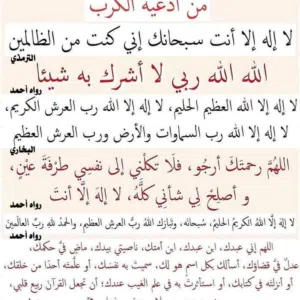 من أدعية الكرب
لا إله إلا أنت سبحانك إني كنت من الظالمين
الترمذي
الله الله ربي لا أشرك به شيئا
رواه أحمد
لا إله إلا الله العظيم الحليم، لا إله إلا الله رب العرش الكريم،
لا إله إلا الله رب السماوات والأرض ورب العرش العظيم
البخاري
اللهُمَّ رحمتَكَ أرجُو، فلَا تكلْني إلى نفسِي طرْفةَ عيْنٍ،
و أصلِحْ لي شأني كلَّهُ، لا إلهَ إلَّا أنتَ
رواه أحمد
لا إلهَ إلَّا اللهُ الكريمُ الحليمُ، سُبحانَه، وتبارَكَ اللهُ ربُّ العرشِ العظيمِ، والحمدُ للهِ ربِّ العالَمينَ
رواه أحمد
اللهم إني عبدك، ابن عبدك، ابن أمتك، ناصيتي بيدك، ماضٍ فيَّ حكمُك،
عدلٌ فيَّ قضاؤك، أسألك بكل اسم هو لك، سميتَ به نفسَك، أو علَّمته أحدًا من خلقك،
أو أنزلته في كتابك، أو استأثرتَ به في علم الغيب عندك: أن تجعل القرآن ربيع قلبي،